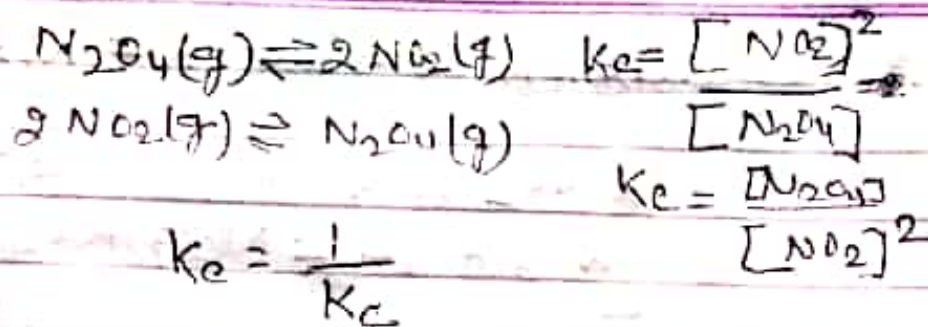 N₂O₄(g) ⇌ 2 NO₂(g) Kc = [NO₂]² / [N₂O₄]
2 NO₂(g) ⇌ N₂O₄(g) Kc = [N₂O₄] / [NO₂]²
Kc = 1 / Kc